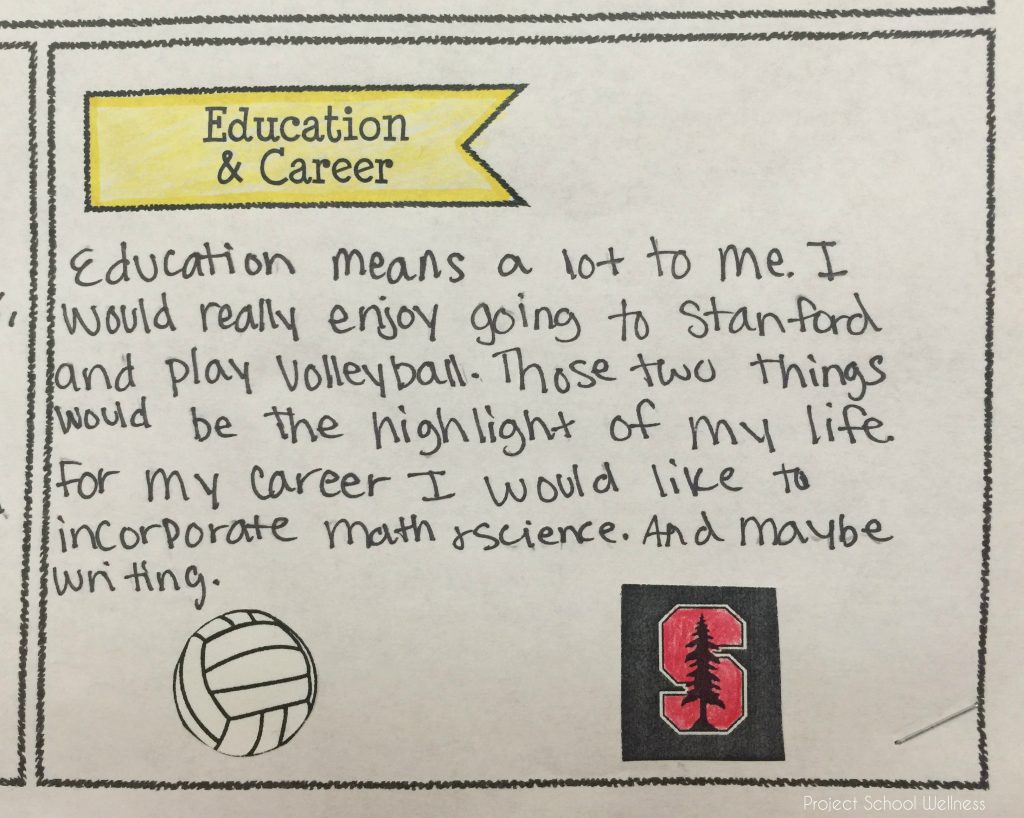 Education
& Career
Education means a lot to me. I
would really enjoy going to Stanford
and play volleyball. Those two things
would be the highlight of my life.
For my career I would like to
incorporate math & science. And maybe
writing.
S
Project School Wellness